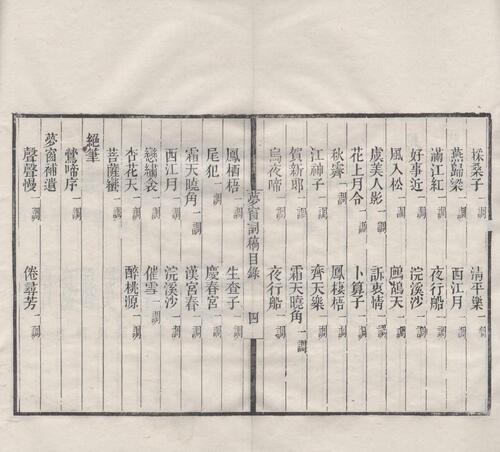 採桑子一調 清平樂一調
燕歸梁一調 西江月一調
滿江紅一調 夜行船一調
好事近一調 浣溪沙一調
風入松一調 鷓鴣天一調
虞美人影一調 訴衷情一調
花上月令一調 卜算子一調
秋霽一調 鳳棲梧一調
江神子一調 齊天樂一調
賀新郎一調 霜天曉角一調
烏夜啼一調 夜行船一調
夢窗詞稿目錄 四
鳳栖梧一調 生查子一調
尾犯一調 慶春宮一調
霜天曉角一調 漢宮春一調
西江月一調 浣溪沙一調
戀繡衾一調 催雪一調
杏花天一調 醉桃源一調
菩薩蠻一調
絕筆
鶯啼序一調
夢窗補遺
聲聲慢一調 倦尋芳一調